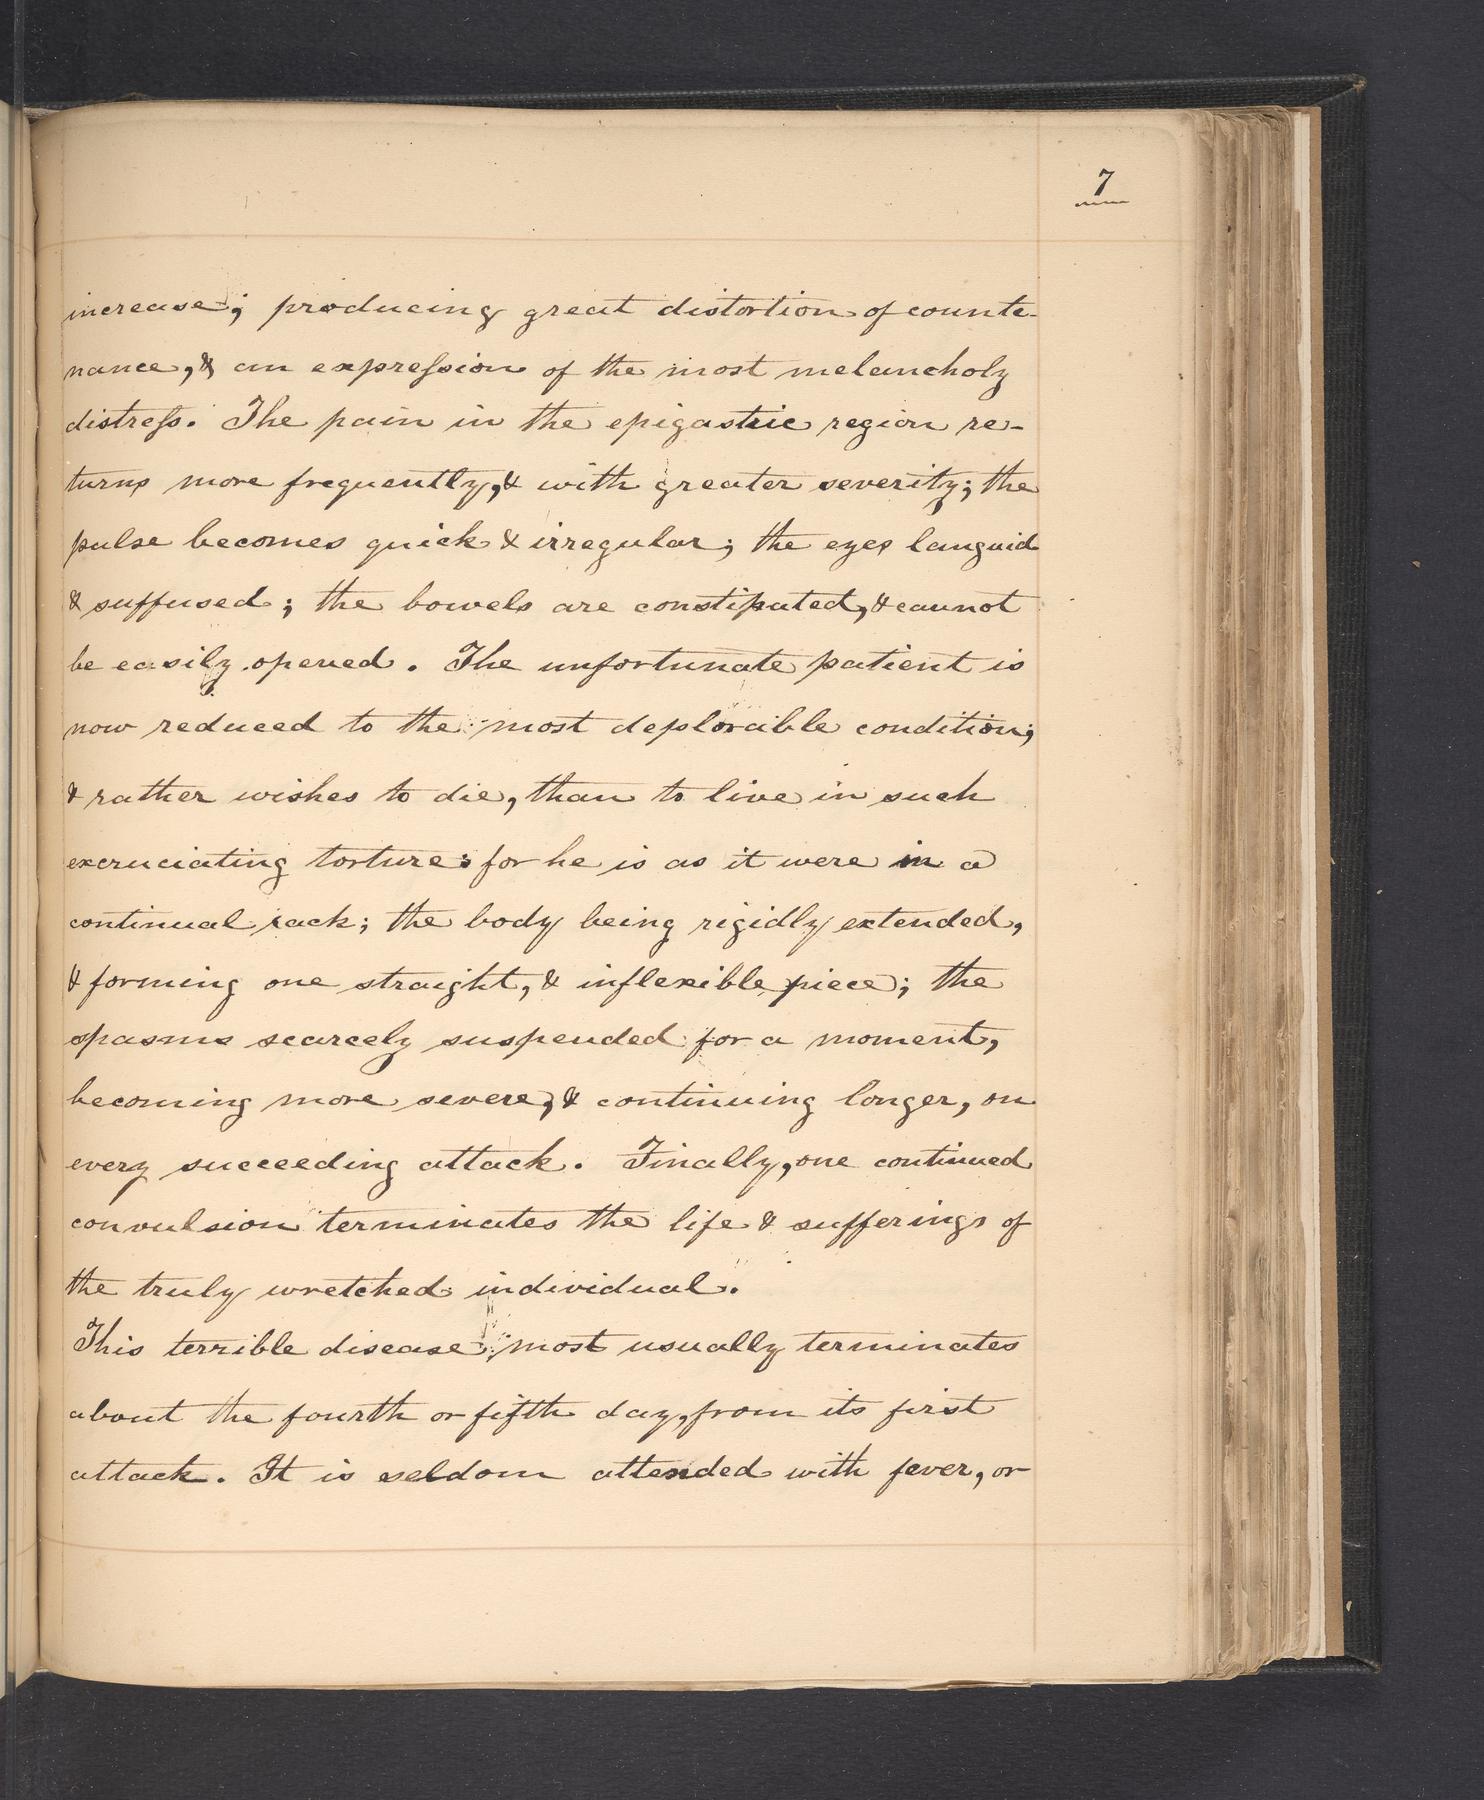 7
increase; producing great distortion of counte-
nance, & an expreſsion of the most melancholy
distreſs. The pain in the epigastric region re-
turns more frequently, & with greater severity; the
pulse becomes quick & irregular; the eyes languid
& suffused; the bowels are constipated, & cannot
be easily opened. The unfortunate patient is
now reduced to the most deplorable condition;
& rather wishes to die, than to live in such
excruciating torture: for he is as it were in a
continual rack; the body being rigidly extended,
& forming one straight, & inflexible piece; the
spasms scarcely suspended for a moment,
becoming more severe, & continuing longer, on
every succeeding attack. Finally, one continued
convulsion terminates the life & sufferings of
the truly wretched individual.
This terrible disease most usually terminates
about the fourth or fifth day, from its first
attack. It is seldom attended with fever, or